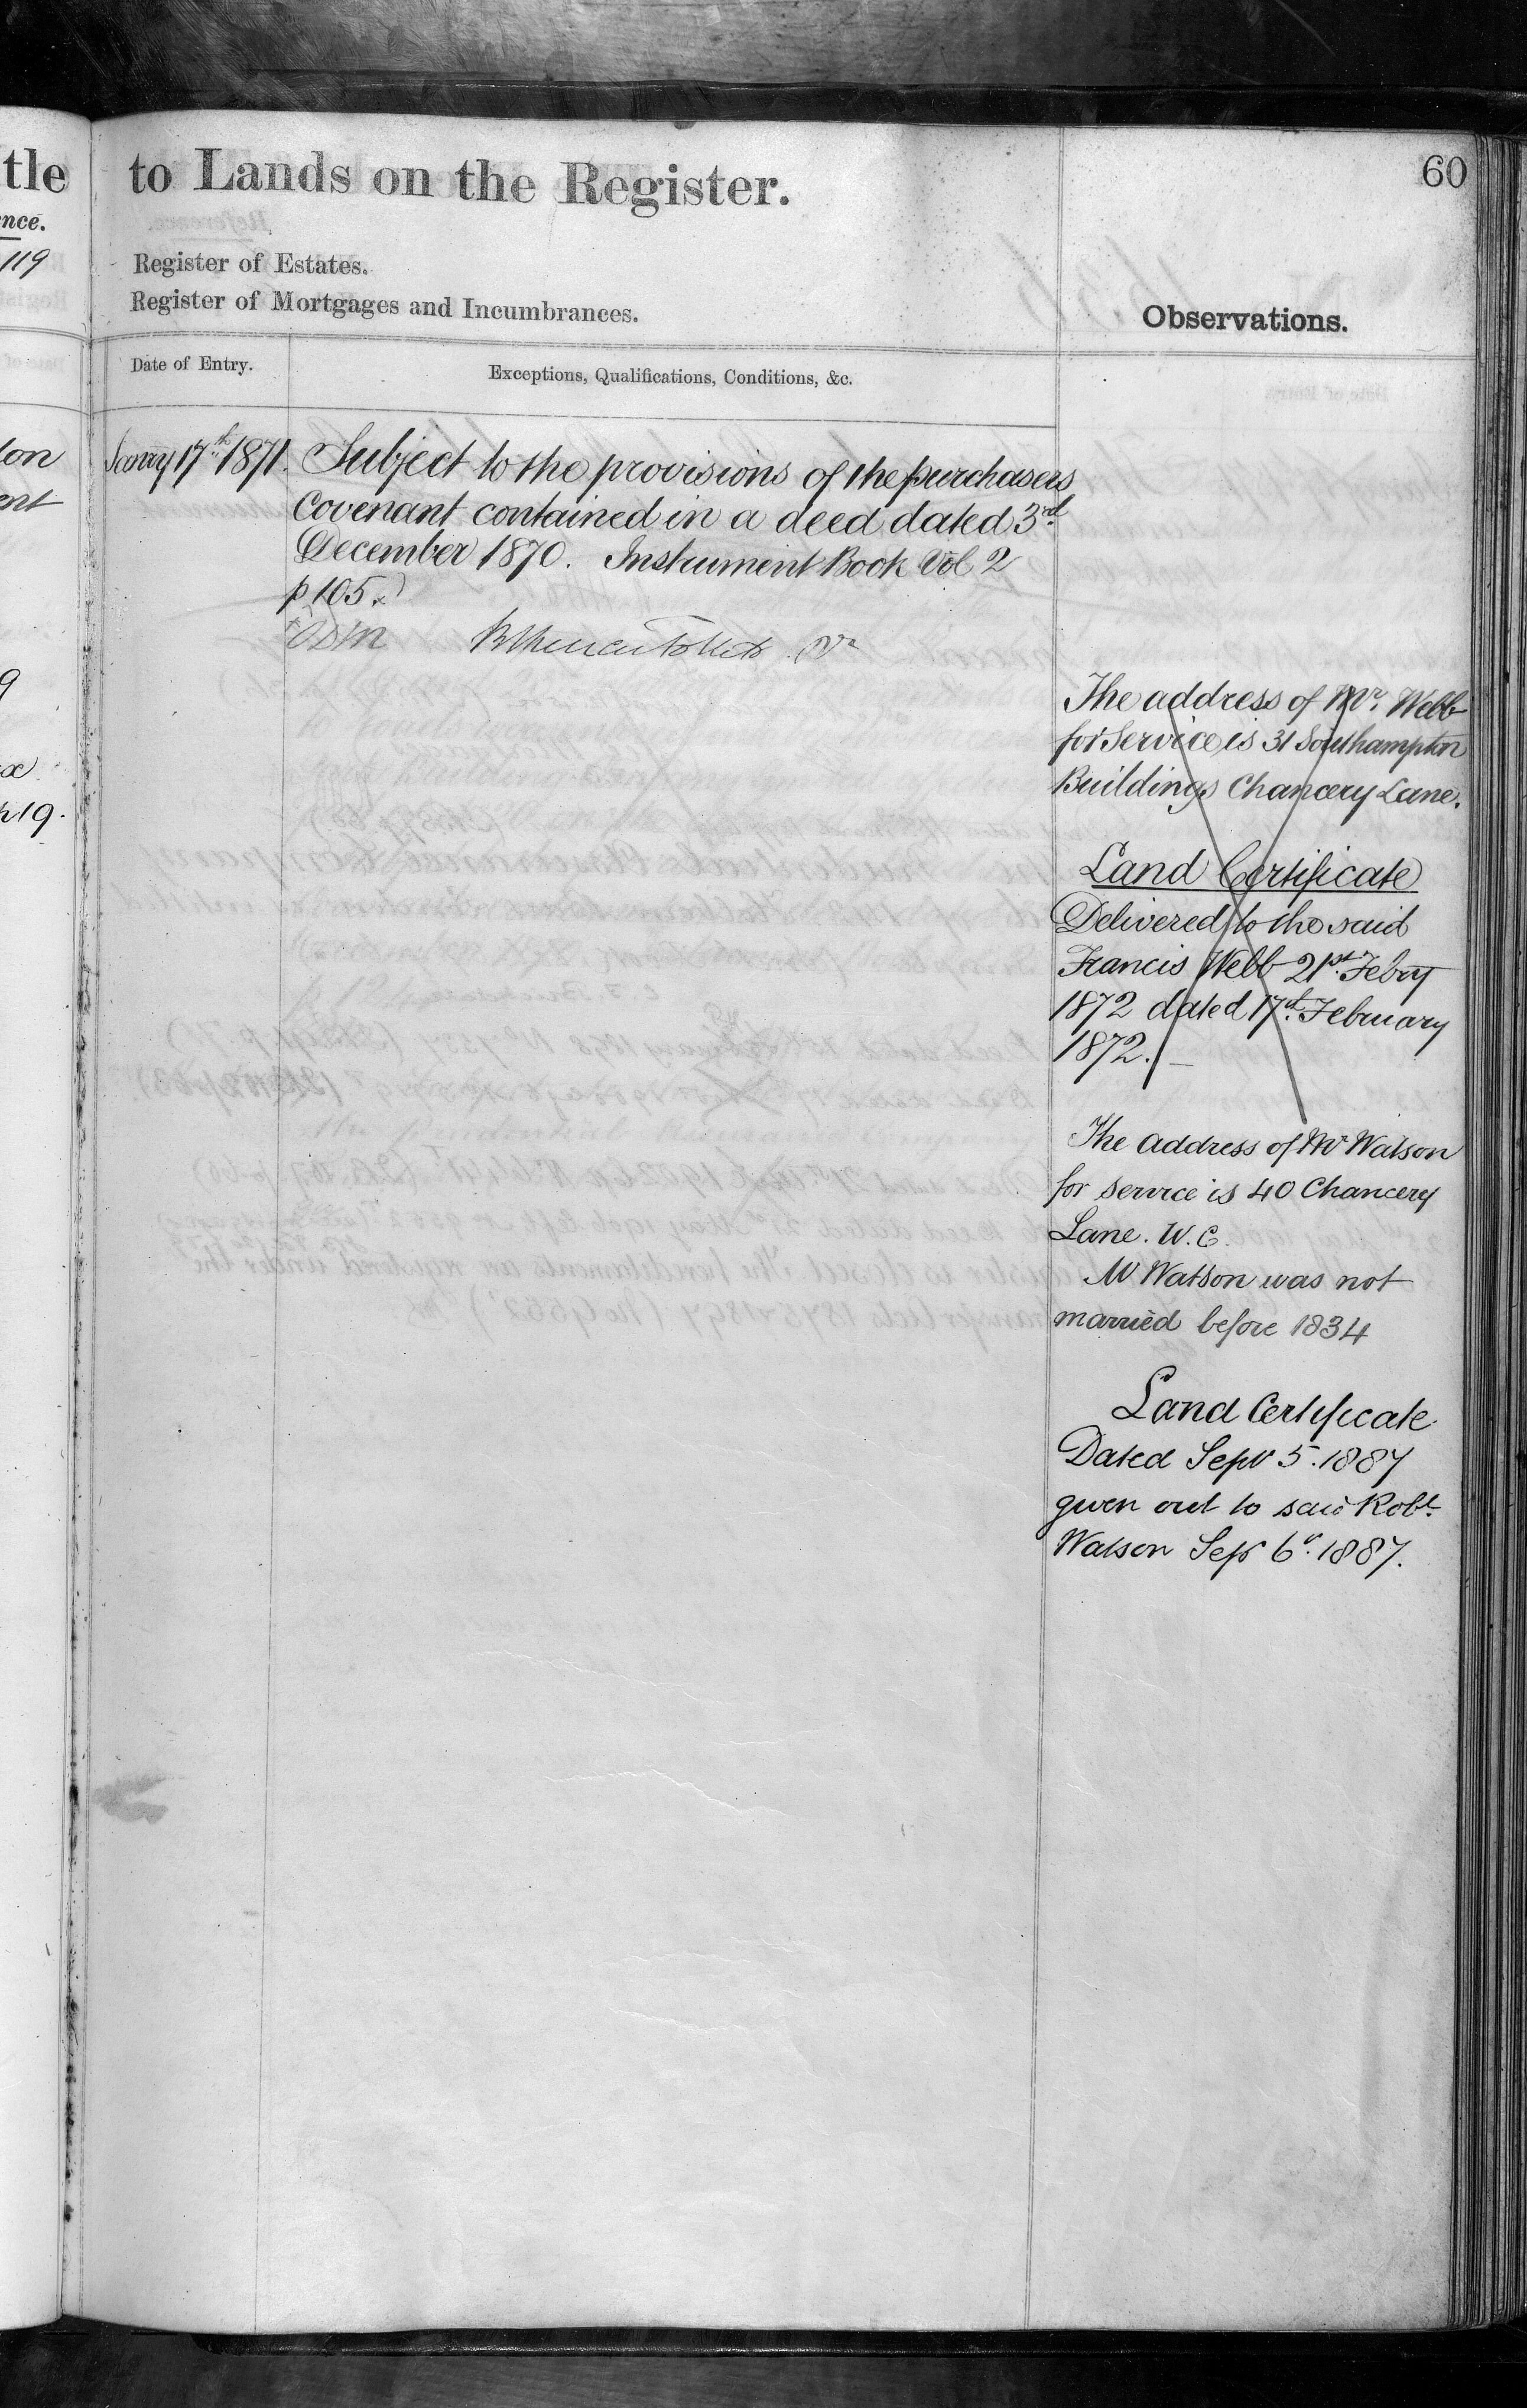 tle
nce.
119
lon
ent
9
19.
to Lands on the Register.
60
Register of Estates.
Register of Mortgages and Incumbrances.
Observations.
Date of Entry.
Exceptions, Qualifications, Conditions, &c.
17th 1871. Subject to the provisions of the purchasers
Covenant contained in a deed dated 3rd
December 1870. Instrument Book Vol 2
p 105.
The address of Mr. Webb
for Service is 31 Southampton
Buildings Chancery Lane.
Land Certificate
Delivered to the said
Francis Webb 21st Febry
1872 dated 17th February
1872.
The address of Mr Watson
for service is 40 Chancery
Lane. W.C.
Mr Watson was not
married before 1834
Land Certificate
Dated Sepr 5. 1887
given out to said Robt.
Watson Sepr 6th. 1887.